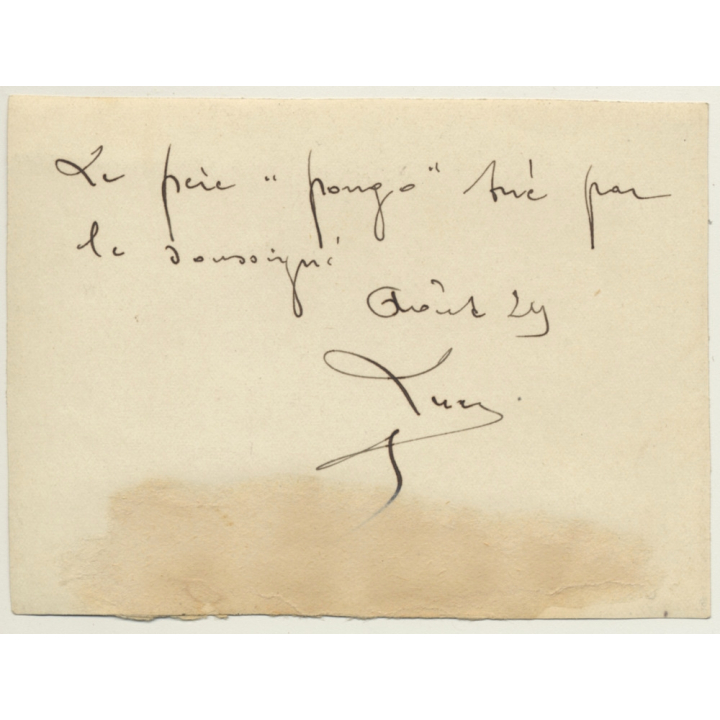 Le père "pongo" tué par
le soussigné
Août 29